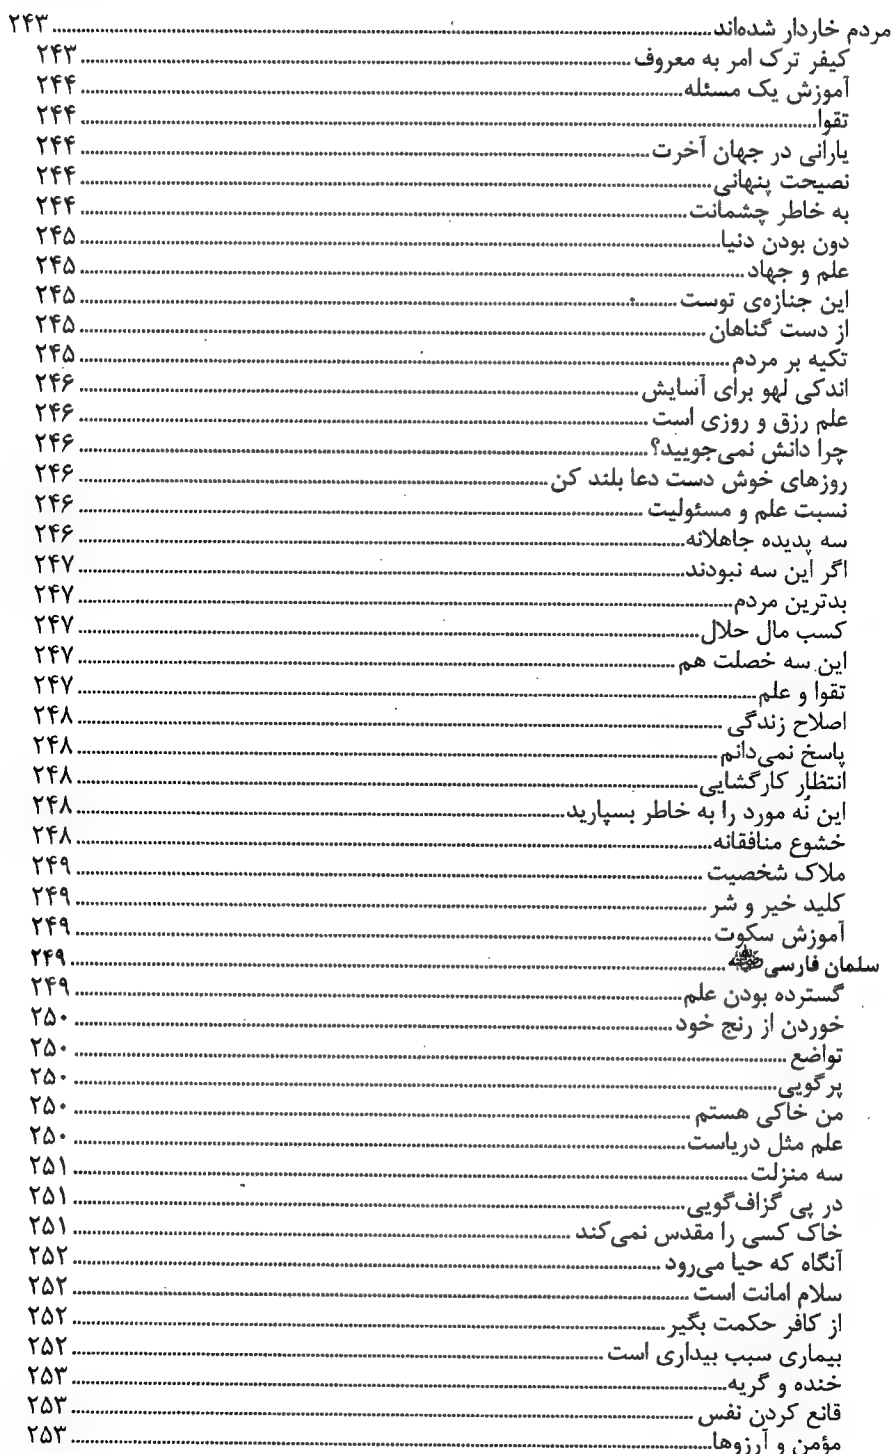 مردم خاردار شده‌اند ........ ۲۴۳
کیفر ترک امر به معروف ........ ۲۴۳
آموزش یک مسئله ........ ۲۴۴
تقوا ........ ۲۴۴
یارانی در جهان آخرت ........ ۲۴۴
نصیحت پنهانی ........ ۲۴۴
به خاطر چشمانت ........ ۲۴۴
دون بودن دنیا ........ ۲۴۵
علم و جهاد ........ ۲۴۵
این جنازه‌ی توست ........ ۲۴۵
از دست گناهان ........ ۲۴۵
تکیه بر مردم ........ ۲۴۵
اندکی لهو برای آسایش ........ ۲۴۶
علم رزق و روزی است ........ ۲۴۶
چرا دانش نمی‌جویید؟ ........ ۲۴۶
روزهای خوش دست دعا بلند کن ........ ۲۴۶
نسبت علم و مسئولیت ........ ۲۴۶
سه پدیده جاهلانه ........ ۲۴۶
اگر این سه نبودند ........ ۲۴۷
بدترین مردم ........ ۲۴۷
کسب مال حلال ........ ۲۴۷
این سه خصلت هم ........ ۲۴۷
تقوا و علم ........ ۲۴۷
اصلاح زندگی ........ ۲۴۸
پاسخ نمی‌دانم ........ ۲۴۸
انتظار کارگشایی ........ ۲۴۸
این نُه مورد را به خاطر بسپارید ........ ۲۴۸
خشوع منافقانه ........ ۲۴۸
ملاک شخصیت ........ ۲۴۹
کلید خیر و شر ........ ۲۴۹
آموزش سکوت ........ ۲۴۹
سلمان فارسی ........ ۲۴۹
گسترده بودن علم ........ ۲۴۹
خوردن از رنج خود ........ ۲۵۰
تواضع ........ ۲۵۰
پرگویی ........ ۲۵۰
من خاکی هستم ........ ۲۵۰
علم مثل دریاست ........ ۲۵۰
سه منزلت ........ ۲۵۱
در پی گزاف‌گویی ........ ۲۵۱
خاک کسی را مقدس نمی‌کند ........ ۲۵۱
آنگاه که حیا می‌رود ........ ۲۵۲
سلام امانت است ........ ۲۵۲
از کافر حکمت بگیر ........ ۲۵۲
بیماری سبب بیداری است ........ ۲۵۲
خنده و گریه ........ ۲۵۳
قانع کردن نفس ........ ۲۵۳
مؤمن و آرزوها ........ ۲۵۳